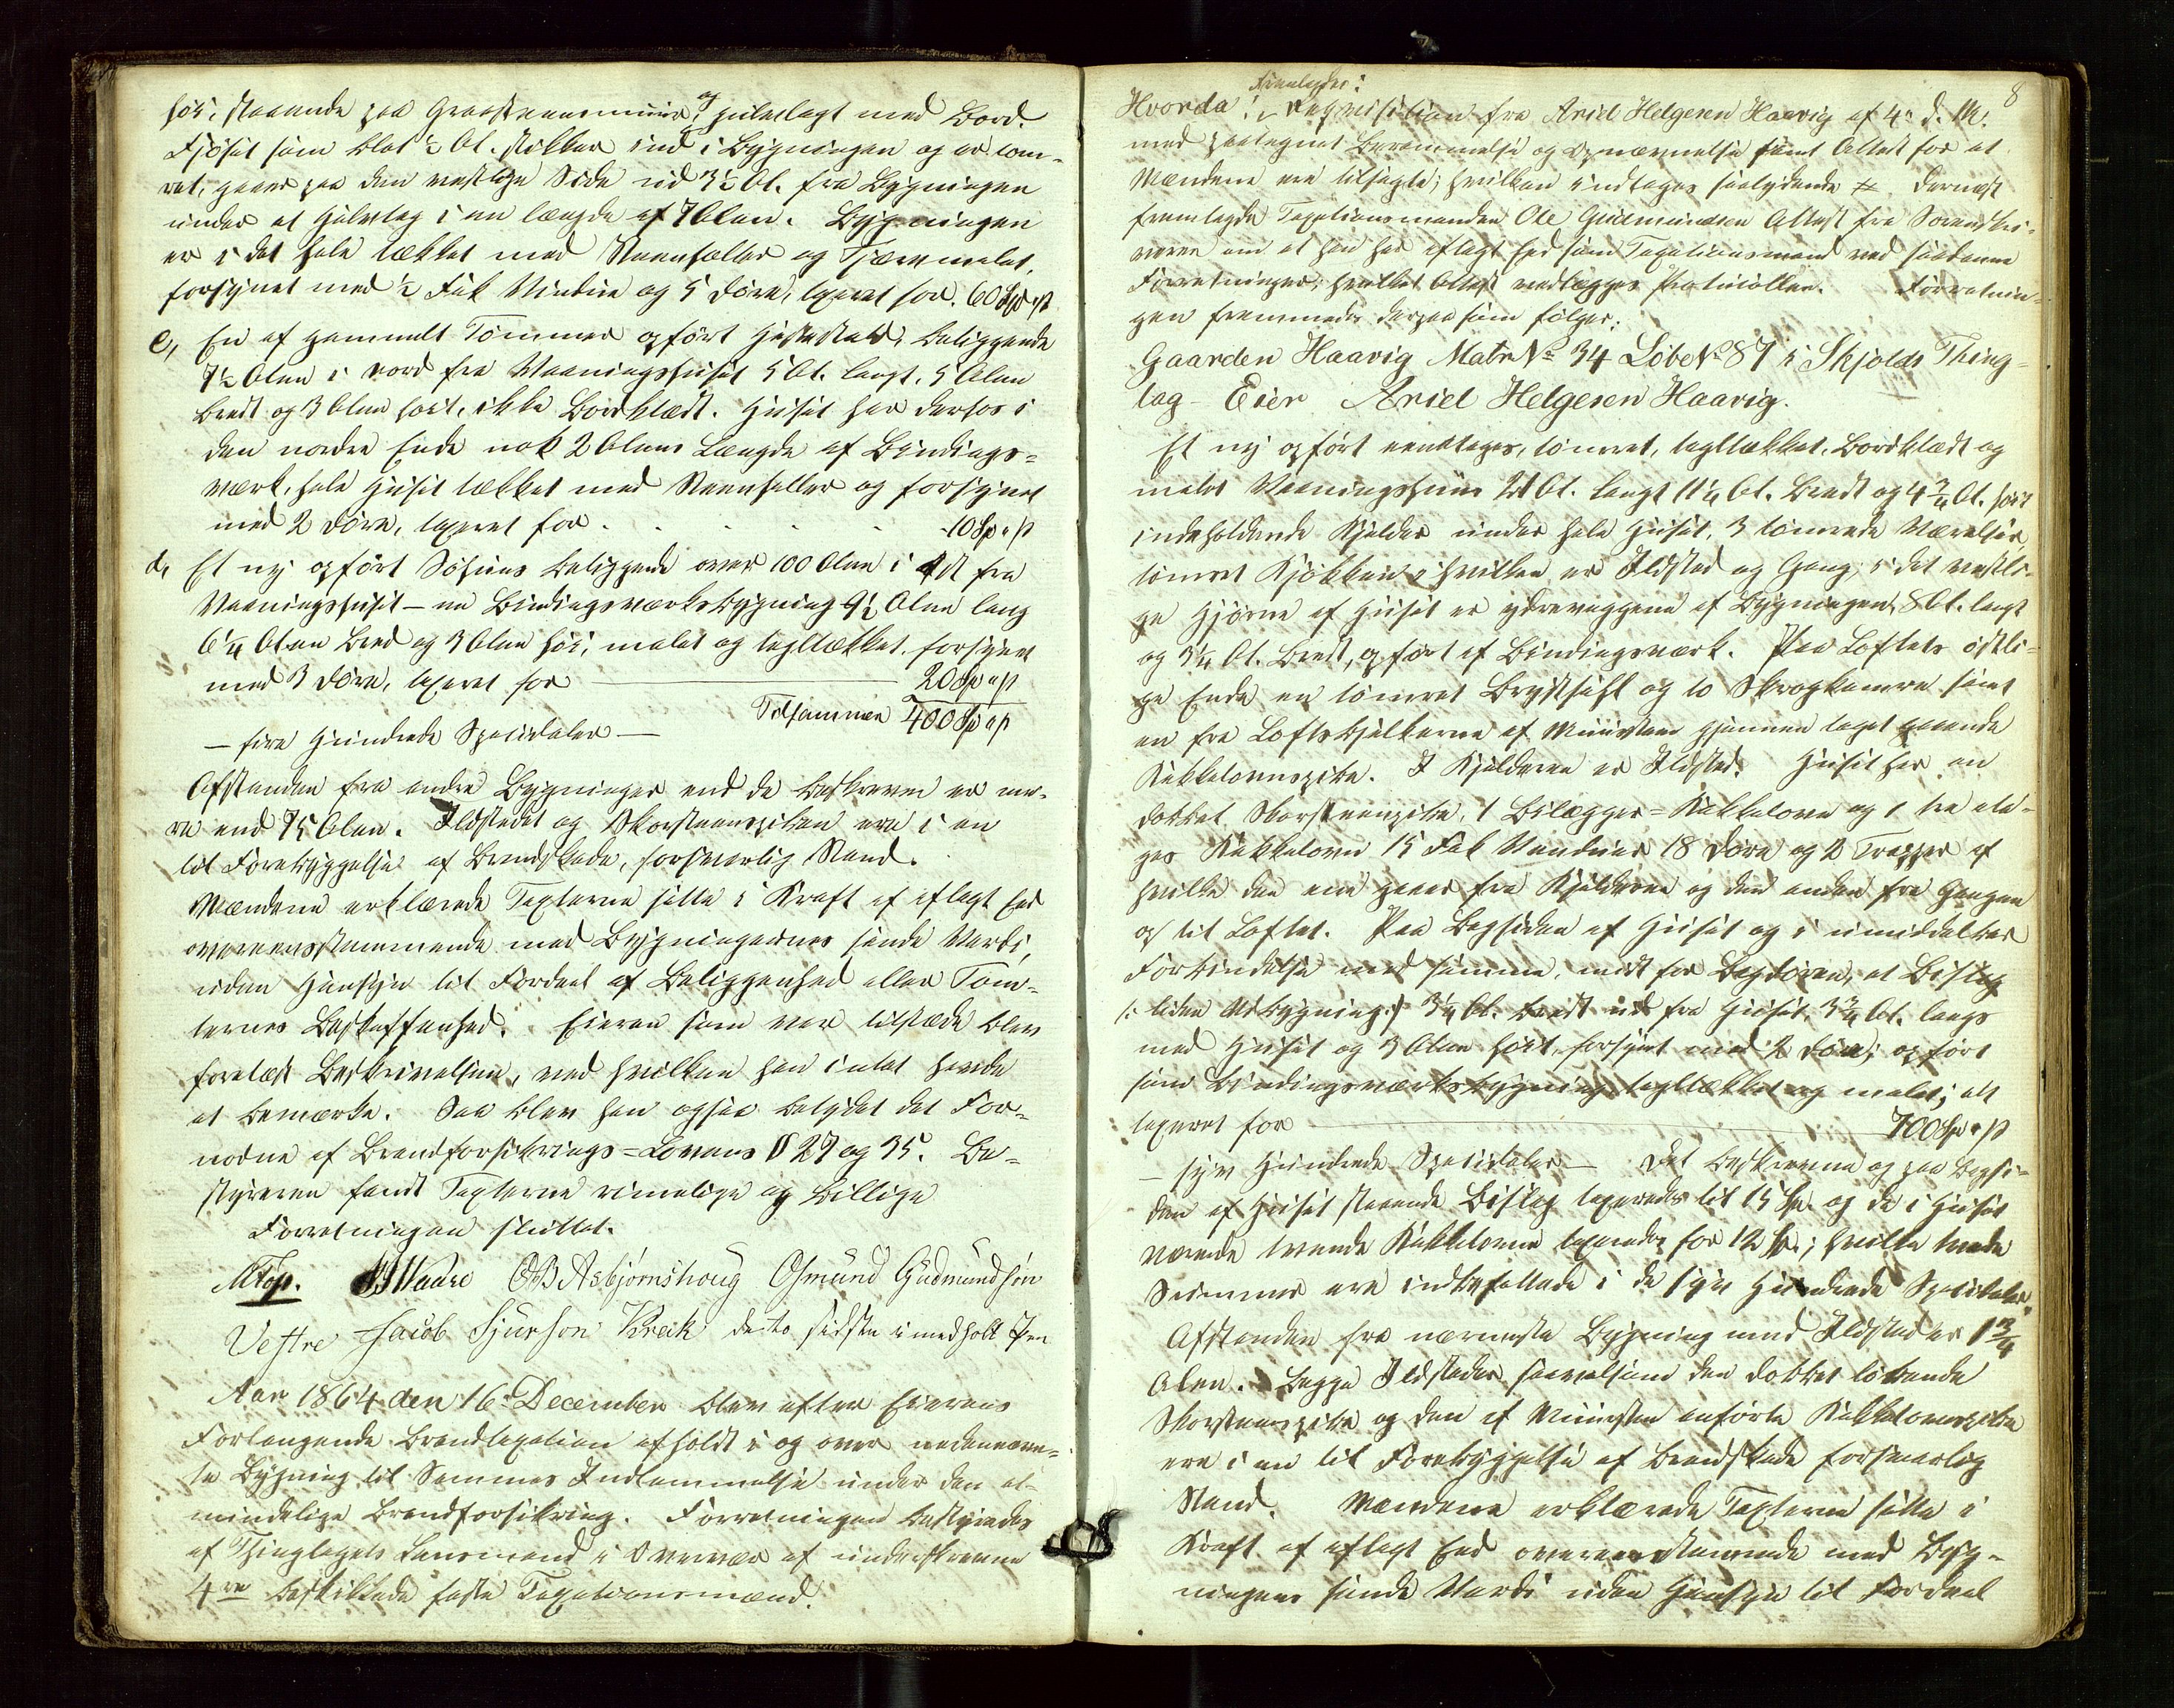 høi, staaende paa Graasteensmuur, og gulvlagt med Bord.
Fjøset som blot ½ Al. stikker ind i Bygningen og er tøm-
ret, gaaer paa den vestlige Side ud 3½ Al. fra Bygningen
under et Halvtag i en Længde af 7 Alen. Bygningen
er i det hele tækket med Steenheller og Tjæremalet,
forsynet med ½ Fak Vindue og 5 Døre, taxeret for. 60 Spd " ß
c, En af gammelt Tømmer opført Hestestald, beliggende
7½ Alen i nord fra Vaaningshuset 5 Al. langt, 5 Alen
bredt og 3 Alen høit, ikke Bordklædt. Huset har derhos i
den nordre Ende nok 2 Alens Længde af Bindings-
værk, hele Huset tækket med Steenheller og forsynet
med 2 Døre, taxeret for . . . . . 10 Sp " ß
d, Et ny opført Søhuus beliggende over 100 Alen i Øst fra
Vaaningshuset – en Bindingsværksbygning 9½ Alen lang
6¼ Alen bred og 3 Alen høi, malet og tagltækket, forsynet
med 3 Døre, taxeret for 20 Sp " ß
Tilsammen 400 Sp " ß
– fire Hundrede Speciedaler –
Afstanden fra andre Bygninger end de beskrevne er me-
re end 75 Alen. Ildstedet og Skorsteenspiben ere i en
til Forebyggelse af Brandskade, forsvarlig Stand.
Mændene erklærede Taxterne satte i Kraft af aflagt Eed
overeensstemmende med Bygningernes sande Værdi,
uden Hensyn til Fordeel af Beliggenhed eller Tom-
ternes Beskaffenhed. Eieren som var tilstæde blev
forelæst Beskrivelsen, ved hvilken han intet havde
at bemærke. Saa blev han ogsaa betydet det For-
nødne af Brandforsikrings-Lovens § 27 og 35. Be-
styreren fandt Taxterne rimelige og billige
Forretningen sluttet.
OB Asbjørnshoug Osmund Gudmundsøn
Vestre Jacob Sjurson Kreik de to sidste i medholt Pen
Aar 1864 den 16de December blev efter Eierens
Forlangende Brandtaxation afholdt i og over nedennævn-
te Bygning til Sammes Indlemmelse under den al-
mindelige Brandforsikring. Forretningen bestyredes
af Thinglagets Lensmand i Overvær af underskrevne
4re beskikkede faste Taxationsmænd.
8
Fremlagdes:
Hvorda! Reqvisition fra Ariel Helgesen Haavig af 4de d. M.
med paategnet Berammelse og Opnævnelse samt Attest for at
Mændene ere tilsagte; hvilken indtages saalydende #. Dernæst
fremlagde Taxationsmanden Ole Gudmundsen Attest fra Sorenskri-
veren om at han har aflagt Eed som Taxationsmand ved saadanne
Forretninger; hvilket Attest vedlægges Protocollen. Forretnin-
gen fremmedes derpaa som følger:
Gaarden Haavig Matr No 34 Løbe No 87 i Skjolds Thing-
lag – Eier Ariel Helgesen Haavig.
Et ny opført eenetages, tømret, tagltækket, Bordklædt og
malet Vaaningshuus 21 Al. langt 11¼ Al. bredt og 4¾ Al. høit
indeholdende Kjelder under hele Huset, 3 tømrede Værelser,
tømret Kjøkken i hvilken er Ildsted og Gang; i det vestli-
ge Hjørne af Huset er ydrevæggene af Bygningen 8 Al. langt
og 3¼ Al. bredt, opført af Bindingsværk. Paa Loftets østli-
ge Ende en tømret Brysthalt og to Skraakamre samt
en fra Loftsbjelkerne af Muursteen gjennem taget gaaende
Kakkelovnspibe. I Kjelderen er Ildsted. Huset har en
dobbet Skorsteenspibe, 1 Bilægger-Kakkelovn og 1 tre eta-
ges Kakkelovn 15 Fak Vinduer 18 Døre og 2 Trapper af
hvilke den ene gaaer fra Kjelderen og den anden fra Gangen
op til Loftet. Paa Bagsiden af Huset og i umiddelbar
Forbindelse med samme, midt for Bagdøren, et Bislag
/: liden Udbygning:/ 3¼ Al. bredt ud fra Huset, 3¾ Al. langs
med Huset og 3 Alen høit, forsynt med 2 Døre; opført
som Bindingsværksbygning, tagltækket og malet; alt
taxeret for 700 Sp " ß
– syv Hundrede Speciedaler – Det beskrevne og paa Bagsi-
den af Huset staaende Bislag taxeredes til 15 Sp. og de i Huset
værende tvende Kakkelovne taxeredes for 12 Sp.; hvilke tvende
Summer ere indbefattede i de syv Hundrede Speciedaler.
Afstanden fra nærmeste Bygning med Ildsted er 1¾
Alen. Begge Ildsteder saavelsom den dobbet løbende
Skorsteenspibe og den af Muursteen anførte Kakkelovnspibe
ere i en til Forebyggelse af Brandskade forsvarlig
Stand. Mændene erklærede Taxterne satte i
Kraft af aflagt Eed overeensstemmende med Byg-
ningens sande Værdi uden Hensyn til Fordeel